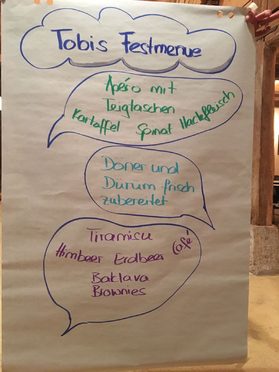 Tobis Festmenue
Apéro mit
Teigtaschen
Kartoffel Spinat Hackfleisch
Döner und
Dürüm frisch
zubereitet
Tiramisu
Himbeer Erdbeer Café
Baklava
Brownies